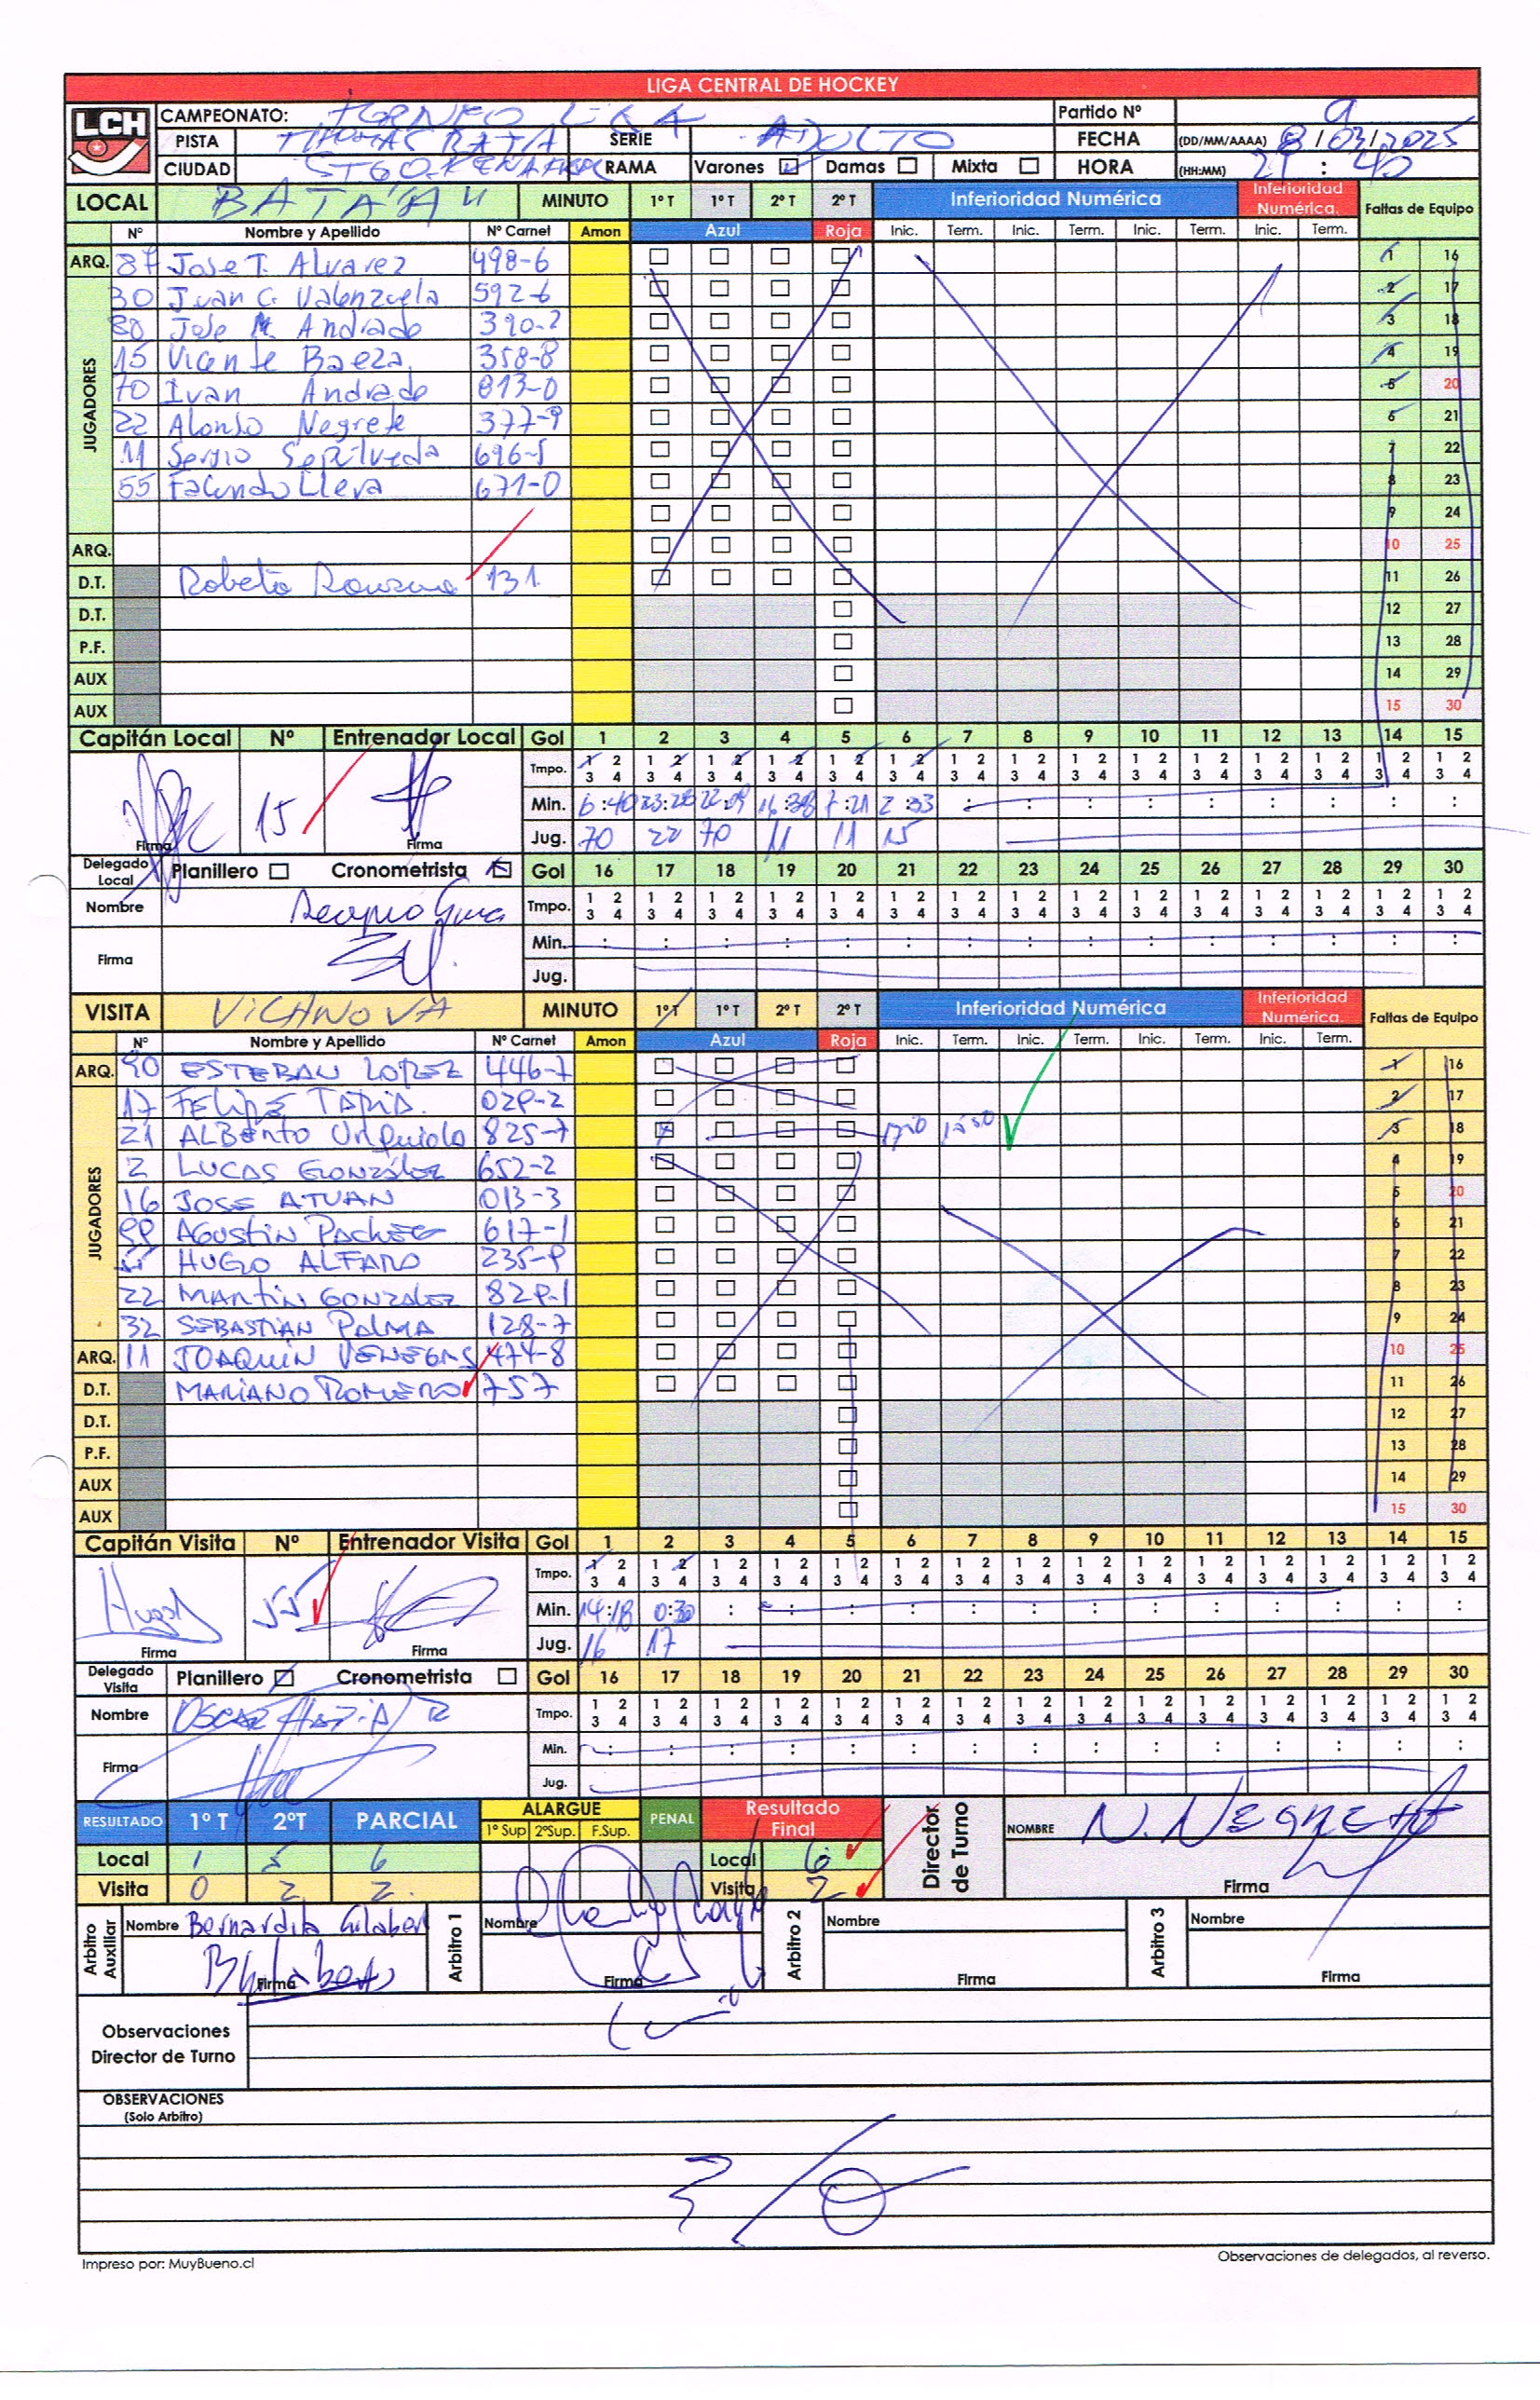 LIGA CENTRAL DE HOCKEY
LCH
CAMPEONATO: TORNEO LIGA
Partido Nº 9
PISTA THOMAS BATA SERIE ADULTO FECHA (DD/MM/AAAA) 8/03/2025
CIUDAD STGO. PEÑAFLOR RAMA Varones Damas Mixta HORA (HH:MM) 21:40
LOCAL BATA "A" MINUTO 1º T 1º T 2º T 2º T Inferioridad Numérica Inferioridad Numérica. Faltas de Equipo
Nº Nombre y Apellido Nº Carnet Amon Azul Roja Inic. Term. Inic. Term. Inic. Term. Inic. Term.
JUGADORES
ARQ. 87 Jose T. Alvarez 498-6 1 16
30 Juan C. Valenzuela 592-6 2 17
80 Jose M. Andrade 390-2 3 18
15 Vicente Baeza 358-8 4 19
70 Ivan Andrade 813-0 5 20
22 Alonso Negrete 377-9 6 21
11 Sergio Sepulveda 696-5 7 22
55 Facundo Lleva 671-0 8 23
9 24
ARQ. 10 25
D.T. Roberto 131. 11 26
D.T. 12 27
P.F. 13 28
AUX 14 29
AUX 15 30
Capitán Local Nº Entrenador Local Gol 1 2 3 4 5 6 7 8 9 10 11 12 13 14 15
Tmpo. 1 2 1 2 1 2 1 2 1 2 1 2 1 2 1 2 1 2 1 2 1 2 1 2 1 2 1 2 1 2
3 4 3 4 3 4 3 4 3 4 3 4 3 4 3 4 3 4 3 4 3 4 3 4 3 4 3 4 3 4
15 Min. 6:40 23:28 22:09 16:38 7:21 2:33 : : : : : : : : :
Firma Firma Jug. 70 22 70 11 11 15
Delegado Local Planillero Cronometrista Gol 16 17 18 19 20 21 22 23 24 25 26 27 28 29 30
Nombre Tmpo. 1 2 1 2 1 2 1 2 1 2 1 2 1 2 1 2 1 2 1 2 1 2 1 2 1 2 1 2 1 2
3 4 3 4 3 4 3 4 3 4 3 4 3 4 3 4 3 4 3 4 3 4 3 4 3 4 3 4 3 4
Firma Min. : : : : : : : : : : : : : : :
Jug.
VISITA VICHNOVA MINUTO 1º T 1º T 2º T 2º T Inferioridad Numérica Inferioridad Numérica. Faltas de Equipo
Nº Nombre y Apellido Nº Carnet Amon Azul Roja Inic. Term. Inic. Term. Inic. Term. Inic. Term.
JUGADORES
ARQ. 90 ESTEBAN LOPEZ 446-7 1 16
17 FELIPE TAPIA. 029-2 2 17
21 ALBERTO Urquiola 825-7 17:50 15:50 3 18
2 LUCAS GONZÁLEZ 652-2 4 19
16 JOSE ATUAN 013-3 5 20
99 AGUSTIN PACHECO 617-1 6 21
55 HUGO ALFARO 235-9 7 22
22 MARTIN GONZALEZ 829-1 8 23
32 SEBASTIAN PALMA 128-7 9 24
ARQ. 11 JOAQUIN VENEGAS 474-8 10 25
D.T. MARIANO ROMERO 757 11 26
D.T. 12 27
P.F. 13 28
AUX 14 29
AUX 15 30
Capitán Visita Nº Entrenador Visita Gol 1 2 3 4 5 6 7 8 9 10 11 12 13 14 15
Tmpo. 1 2 1 2 1 2 1 2 1 2 1 2 1 2 1 2 1 2 1 2 1 2 1 2 1 2 1 2 1 2
3 4 3 4 3 4 3 4 3 4 3 4 3 4 3 4 3 4 3 4 3 4 3 4 3 4 3 4 3 4
55 Min. 14:18 0:30 : : : : : : : : : : : : :
Firma Firma Jug. 16 17
Delegado Visita Planillero Cronometrista Gol 16 17 18 19 20 21 22 23 24 25 26 27 28 29 30
Nombre OSCAR Tmpo. 1 2 1 2 1 2 1 2 1 2 1 2 1 2 1 2 1 2 1 2 1 2 1 2 1 2 1 2 1 2
3 4 3 4 3 4 3 4 3 4 3 4 3 4 3 4 3 4 3 4 3 4 3 4 3 4 3 4 3 4
Firma Min. : : : : : : : : : : : : : : :
Jug.
RESULTADO 1º T 2ºT PARCIAL ALARGUE 1º Sup 2ºSup. F.Sup. PENAL Resultado Final Director de Turno NOMBRE N. NEGRETE
Local 1 5 6 Local 6
Visita 0 2 2 Visita 2 Firma
Arbitro Auxiliar Nombre Bernardita Gilabert Arbitro 1 Nombre Arbitro 2 Nombre Arbitro 3 Nombre
Firma Firma Firma Firma
Observaciones Director de Turno
OBSERVACIONES
(Solo Arbitro)
Impreso por: MuyBueno.cl
Observaciones de delegados, al reverso.